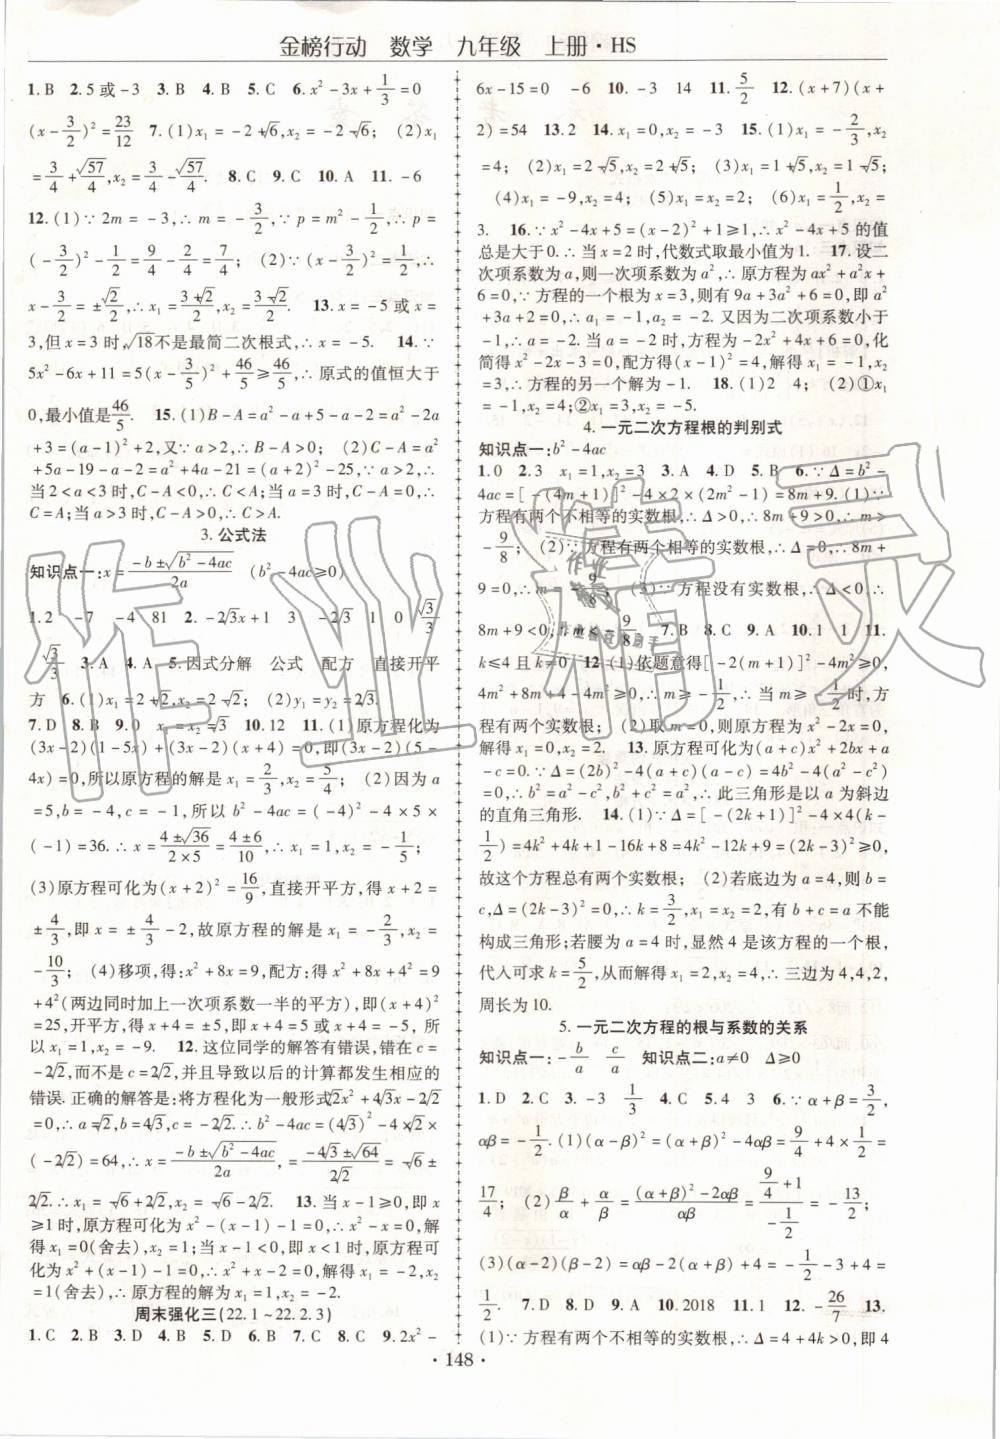 金榜行动 数学 九年级 上册·HS
1. B 2. 5 或 -3 3. B 4. B 5. C 6. x²-3x+1/3=0
(x-3/2)²=23/12 7. (1)x₁=-2+√6,x₂=-2-√6; (2)x₁
=3/4+√57/4,x₂=3/4-√57/4. 8. C 9. C 10. A 11. -6
12. (1)∵2m=-3,∴m=-3/2,∵p=m²-1,∴p=
(-3/2)²-1/2=9/4-2/4=7/4; (2)∵(x-3/2)²=1/2,∴
x-3/2=±√2/2,∴x₁=3+√2/2,x₂=3-√2/2. 13. ∵x=-5或x=
3,但x=3时,√18不是最简二次根式,∴x=-5. 14. ∵
5x²-6x+11=5(x-3/5)²+46/5≥46/5,∴原式的值恒大于
0,最小值是46/5. 15. (1)B-A=a²-a+5-a-2=a²-2a
+3=(a-1)²+2,又∵a>2,∴B-A>0; (2)C-A=a²
+5a-19-a-2=a²+4a-21=(a+2)²-25,∵a>2,∴
当2<a<3时,C-A<0,∴C<A;当a=3时,C-A=0,∴
C=A;当a>3时,C-A>0,∴C>A.
3. 公式法
知识点一:x=-b±√b²-4ac/2a (b²-4ac≥0)
1. 2 -7 -4 81 2. -2√3x+1 3 -2√3 1 0 √3/3
√3/3 3. A 4. A 5. 因式分解 公式 配方 直接开平
方 6. (1)x₁=2+√2,x₂=2-√2; (2)y₁=y₂=2√3.
7. D 8. B 9. 0 x₁=x₂=√3 10. 12 11. (1)原方程化为
(3x-2)(1-5x)+(3x-2)(x+4)=0,即(3x-2)(5-
4x)=0,所以原方程的解是x₁=2/3,x₂=5/4; (2)因为a
=5,b=-4,c=-1,所以b²-4ac=(-4)²-4×5×
(-1)=36. ∴x=4±√36/2×5=4±6/10,∴x₁=1,x₂=-1/5;
(3)原方程可化为(x+2)²=16/9,直接开平方,得x+2=
±4/3,即x=±4/3-2,故原方程的解是x₁=-2/3,x₂=
-10/3; (4)移项,得:x²+8x=9,配方:得x²+8x+4²=9
+4²(两边同时加上一次项系数一半的平方),即(x+4)²
=25,开平方,得x+4=±5,即x₁=-4+5,x₂=-4-5,所
以x₁=1,x₂=-9. 12. 这位同学的解答有错误,错在c=
-2√2,而不是c=2√2,并且导致以后的计算都发生相应的
错误. 正确的解答是:将方程化为一般形式√2x²+4√3x-2√2
=0,∴a=√2,b=4√3,c=-2√2. ∴b²-4ac=(4√3)²-4×√2×
(-2√2)=64,∴x=-b±√b²-4ac/2a=-4√3±√64/2√2=-√6±
2√2. ∴x₁=-√6+2√2,x₂=-√6-2√2. 13. 当x-1≥0,即x
≥1时,原方程可化为x²-(x-1)-1=0,即x²-x=0,解
得x₁=0(舍去),x₂=1;当x-1<0,即x<1时,原方程可
化为x²+(x-1)-1=0,即x²+x-2=0,解得x₁=-2,x₂
=1(舍去),∴原方程的解为x₁=1,x₂=-2.
周末强化三(22.1~22.2.3)
1. C 2. B 3. A 4. D 5. B 6. D 7. B 8. C 9. 2x²-
6x-15=0 -6 10. -3 14 11. 5/2 12. (x+7)(x+
2)=54 13. 2 14. x₁=0,x₂=-3 15. (1)x₁=-2/3,x₂
=4; (2)x₁=2+√5,x₂=2-√5; (3)x₁=1+√5,x₂=1-√5;
(4)x₁=-9,x₂=4; (5)x₁=-2,x₂=4; (6)x₁=1/2,x₂=
3. 16. ∵x²-4x+5=(x-2)²+1≥1,∴x²-4x+5的值
总是大于0. ∴当x=2时,代数式取最小值为1. 17. 设二
次项系数为a,则一次项系数为a²,∴原方程为ax²+a²x+
6=0,∵方程的一个根为x=3,则有9a+3a²+6=0,即a²
+3a+2=0,∴a₁=-1,a₂=-2. 又因为二次项系数小于
-1,∴a=-2. 当a=-2时,方程为-2x²+4x+6=0,化
简得x²-2x-3=0,配方得(x-1)²=4,解得x₁=-1,x₂=
3,∴方程的另一个解为-1. 18. (1)2 4; (2)①x₁
=-1,x₂=4;②x₁=3,x₂=-5.
4. 一元二次方程根的判别式
知识点一:b²-4ac
1. 0 2. 3 x₁=1,x₂=3 3. A 4. D 5. B 6. ∵Δ=b²-
4ac=[-(4m+1)]²-4×2×(2m²-1)=8m+9. (1)∵
方程有两个不相等的实数根,∴Δ>0,∴8m+9>0,∴m>
-9/8; (2)∵方程有两个相等的实数根,∴Δ=0,∴8m+
9=0,∴m=-9/8; (3)∵方程没有实数根,∴Δ<0,∴
8m+9<0,∴m<-9/8. 7. B 8. C 9. A 10. 1 1 11.
k≤4且k≠0 12. (1)依题意得[-2(m+1)]²-4m²≥0,
4m²+8m+4-4m²≥0,∴m≥-1/2,∴当m≥-1/2时,方
程有两个实数根; (2)取m=0,则原方程为x²-2x=0,
解得x₁=0,x₂=2. 13. 原方程可化为(a+c)x²+2bx+a
-c=0. ∵Δ=(2b)²-4(a+c)(a-c)=4b²-4(a²-c²)
=0,∴b²=a²-c²,b²+c²=a²,∴此三角形是以a为斜边
的直角三角形. 14. (1)∵Δ=[-(2k+1)]²-4×4(k-
1/2)=4k²+4k+1-16k+8=4k²-12k+9=(2k-3)²≥0,
故这个方程总有两个实数根; (2)若底边为a=4,则b=
c,Δ=(2k-3)²=0,∴k=3/2,x₁=x₂=2,有b+c=a不能
构成三角形;若腰为a=4时,显然4是该方程的一个根,
代入可求k=5/2,从而解得x₁=2,x₂=4,∴三边为4,4,2,
周长为10.
5. 一元二次方程的根与系数的关系
知识点一:-b/a c/a 知识点二:a≠0 Δ≥0
1. D 2. C 3. -3 1/3 4. C 5. 4 3 6. ∵α+β=3/2,
αβ=-1/2. (1)(α-β)²=(α+β)²-4αβ=9/4+4×1/2=
17/4; (2)β/α+α/β=(α+β)²-2αβ/αβ=9/4+1/-1/2=-13/2;
(3)(α-2)(β-2)=αβ-2(α+β)+4=-1/2-3+4=
1/2. 7. D 8. D 9. A 10. 2018 11. 1 12. -26/7 13.
(1)∵方程有两个不相等的实数根,∴Δ=4+4k>0,即4
·148·
作业精灵